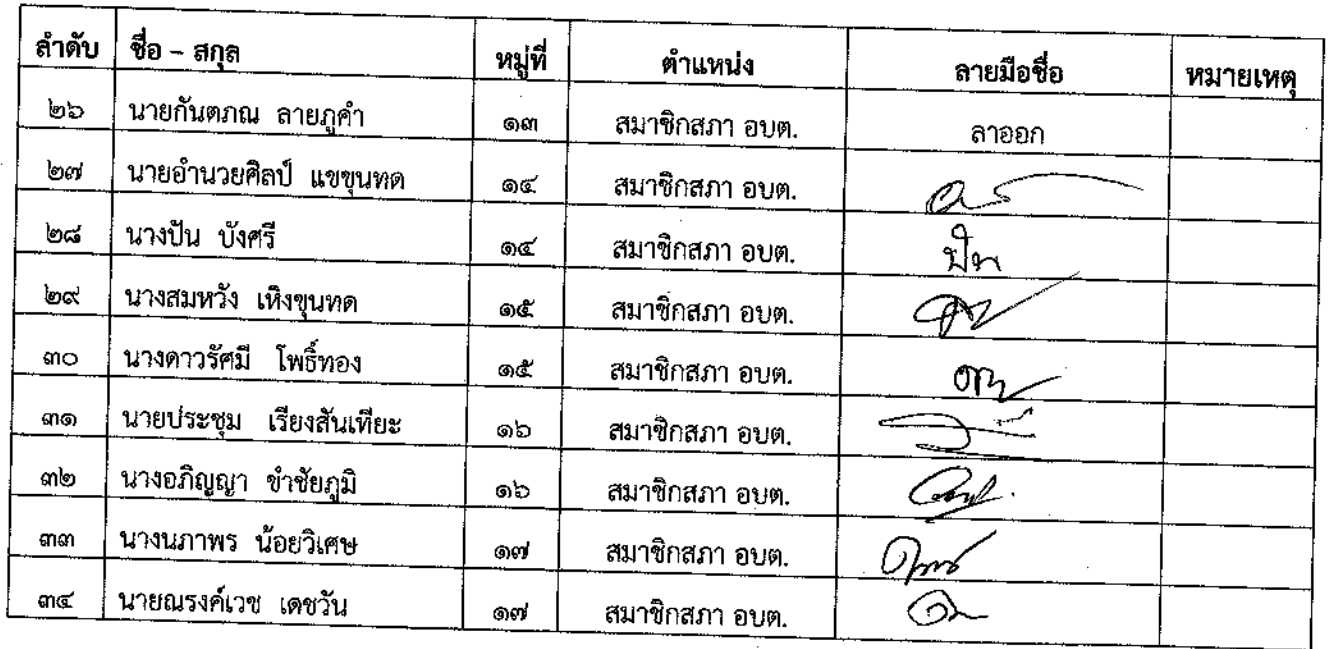 ลำดับ ชื่อ – สกุล หมู่ที่ ตำแหน่ง ลายมือชื่อ หมายเหตุ
๒๖ นายกันตภณ ลายภูคำ ๑๓ สมาชิกสภา อบต. ลาออก
๒๗ นายอำนวยศิลป์ แขขุนทด ๑๔ สมาชิกสภา อบต.
๒๘ นางปิ่น บังศรี ๑๔ สมาชิกสภา อบต. ปิ่น
๒๙ นางสมหวัง เหิงขุนทด ๑๕ สมาชิกสภา อบต.
๓๐ นางดาวรัศมี โพธิ์ทอง ๑๕ สมาชิกสภา อบต.
๓๑ นายประชุม เรียงสันเทียะ ๑๖ สมาชิกสภา อบต.
๓๒ นางอภิญญา ขำชัยภูมิ ๑๖ สมาชิกสภา อบต.
๓๓ นางนภาพร น้อยวิเศษ ๑๗ สมาชิกสภา อบต.
๓๔ นายณรงค์เวช เดชวัน ๑๗ สมาชิกสภา อบต.